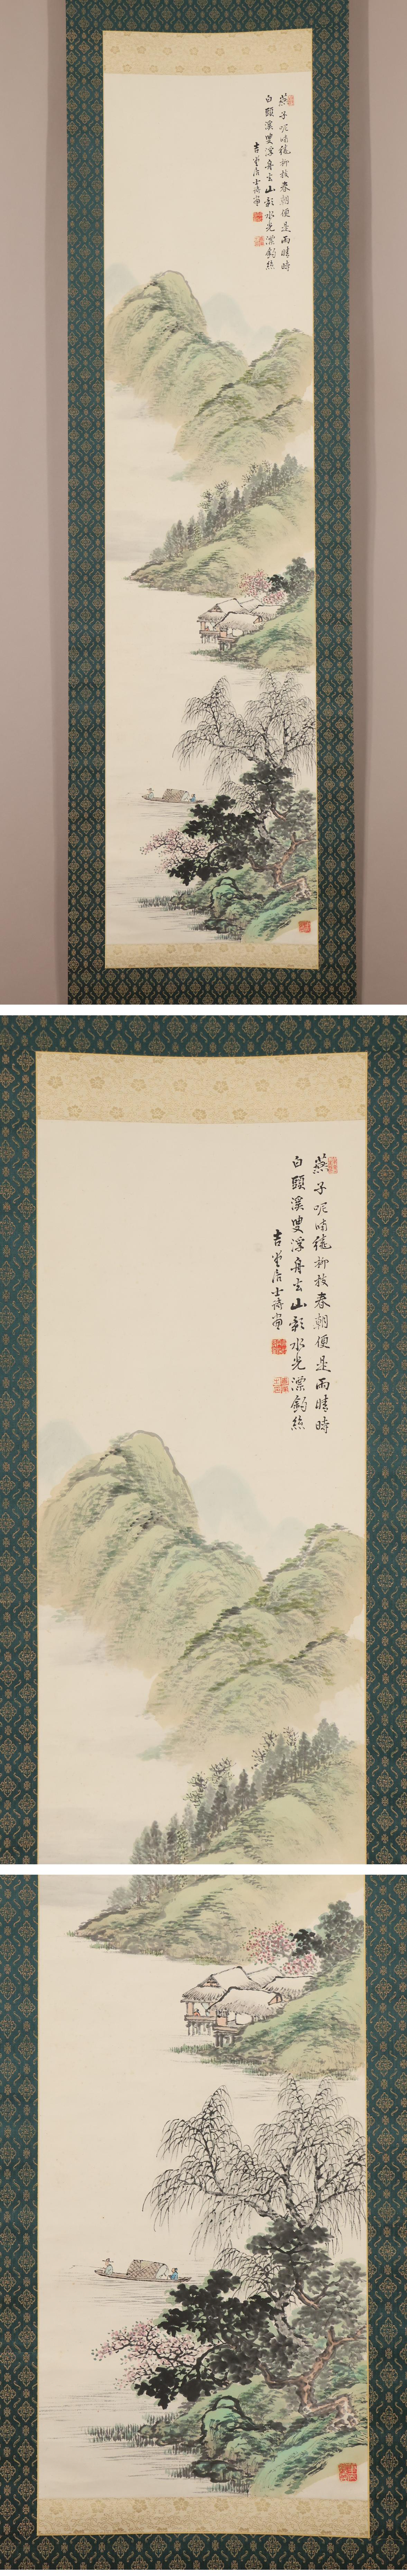 燕子呢喃繞柳枝春朝便是雨晴時
白頭溪叟浮舟去山影水光漂釣絲
吉堂居士併畫
燕子呢喃繞柳枝春朝便是雨晴時
白頭溪叟浮舟去山影水光漂釣絲
吉堂居士併畫